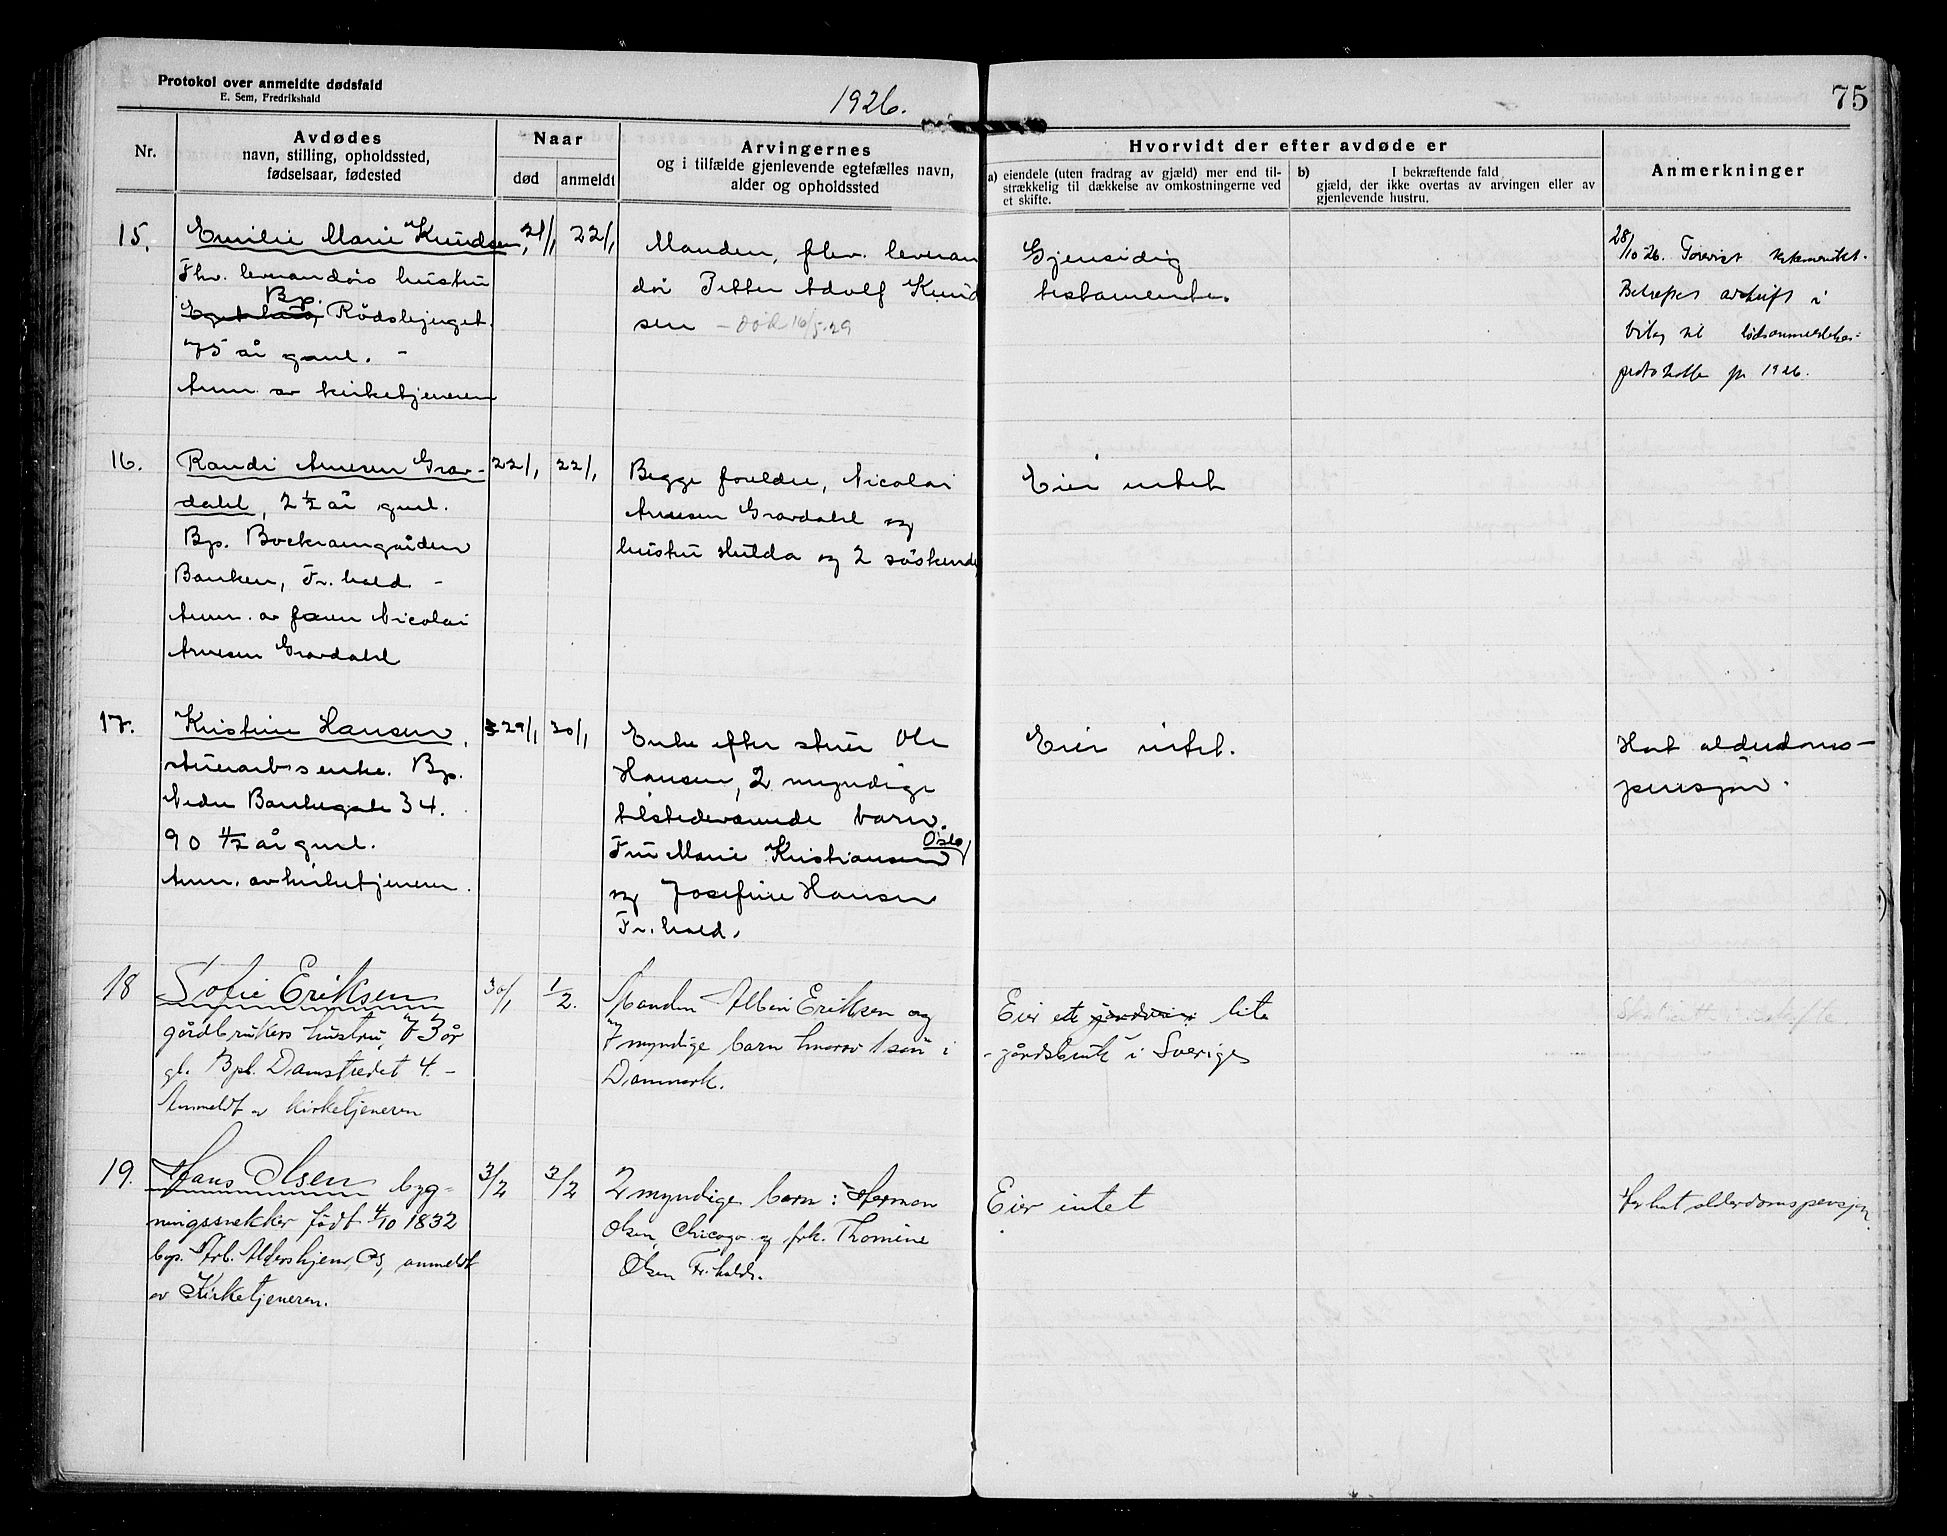 Protokol over anmeldte dødsfald
E. Sem, Fredrikshald
1926.
75
Nr.
Avdødes
navn, stilling, opholdssted,
fødselsaar, fødested
Naar
død
anmeldt
Arvingernes
og i tilfælde gjenlevende egtefælles navn,
alder og opholdssted
Hvorvidt der efter avdøde er
a) eiendele (uten fradrag av gjæld) mer end til-
strækkelig til dækkelse av omkostningerne ved
et skifte.
b) I bekræftende fald
gjæld, der ikke overtas av arvingen eller av
gjenlevende hustru.
Anmerkninger
15.
Emilie Marie Knudsen,
Fhv. leverandørs hustru
Bp.
Rødsbjerget.
75 år gml. -
Anm. av kirketjeneren
21/1
22/1
Manden, fhv. leveran
dør Petter Adolf Knud
sen - død 16/5.29
Gjensidig
testamente.
28/10 26. Forevist
Bekræftet avskrift i
bilag til dødsanmeldelses-
protokollen for 1926.
16.
Randi Arnesen Grav-
dahl, 2 1/2 år gml.
Bp. Bockramgården
Banken, Fr.hald -
Anm. av faren Nicolai
Arnesen Gravdahl
22/1
22/1
Begge foreldre, Nicolai
Arnesen Gravdahl og
hustru Hulda og 2 søskende
Eier intet
17.
Kristine Hansen,
enke. Bp.
Nedre Bankegate 34.
90 1/2 år gml.
Anm. av kirketjeneren.
29/1
30/1
Enke efter Ole
Hansen, 2 myndige
tilstedeværende barn.
Fru Marie Kristiansen Oslo,
og Josefine Hansen
Fr.hald.
Eier intet.
Hat alderdoms-
pensjon.
18
Sofie Eriksen
gårdbrukers hustru, 73 år
gl. Bpl. Damstredet 4. -
Anmeldt av kirketjeneren
30/1
1/2.
Manden Albin Eriksen og
7 myndige barn hvorav 1 søn i
Danmark.
Eier et lite
gårdsbruk i Sverige
19.
Hans Olsen byg-
ningssnekker født 4/10 1832
bop. Arb. Aldershjem, Os, anmeldt
av Kirketjeneren.
3/2
3/2
2 myndige barn: Herman
Olsen, Chicago og frk. Thomine
Olsen Fr.hald.
Eier intet
Har hat alderdomspensjon